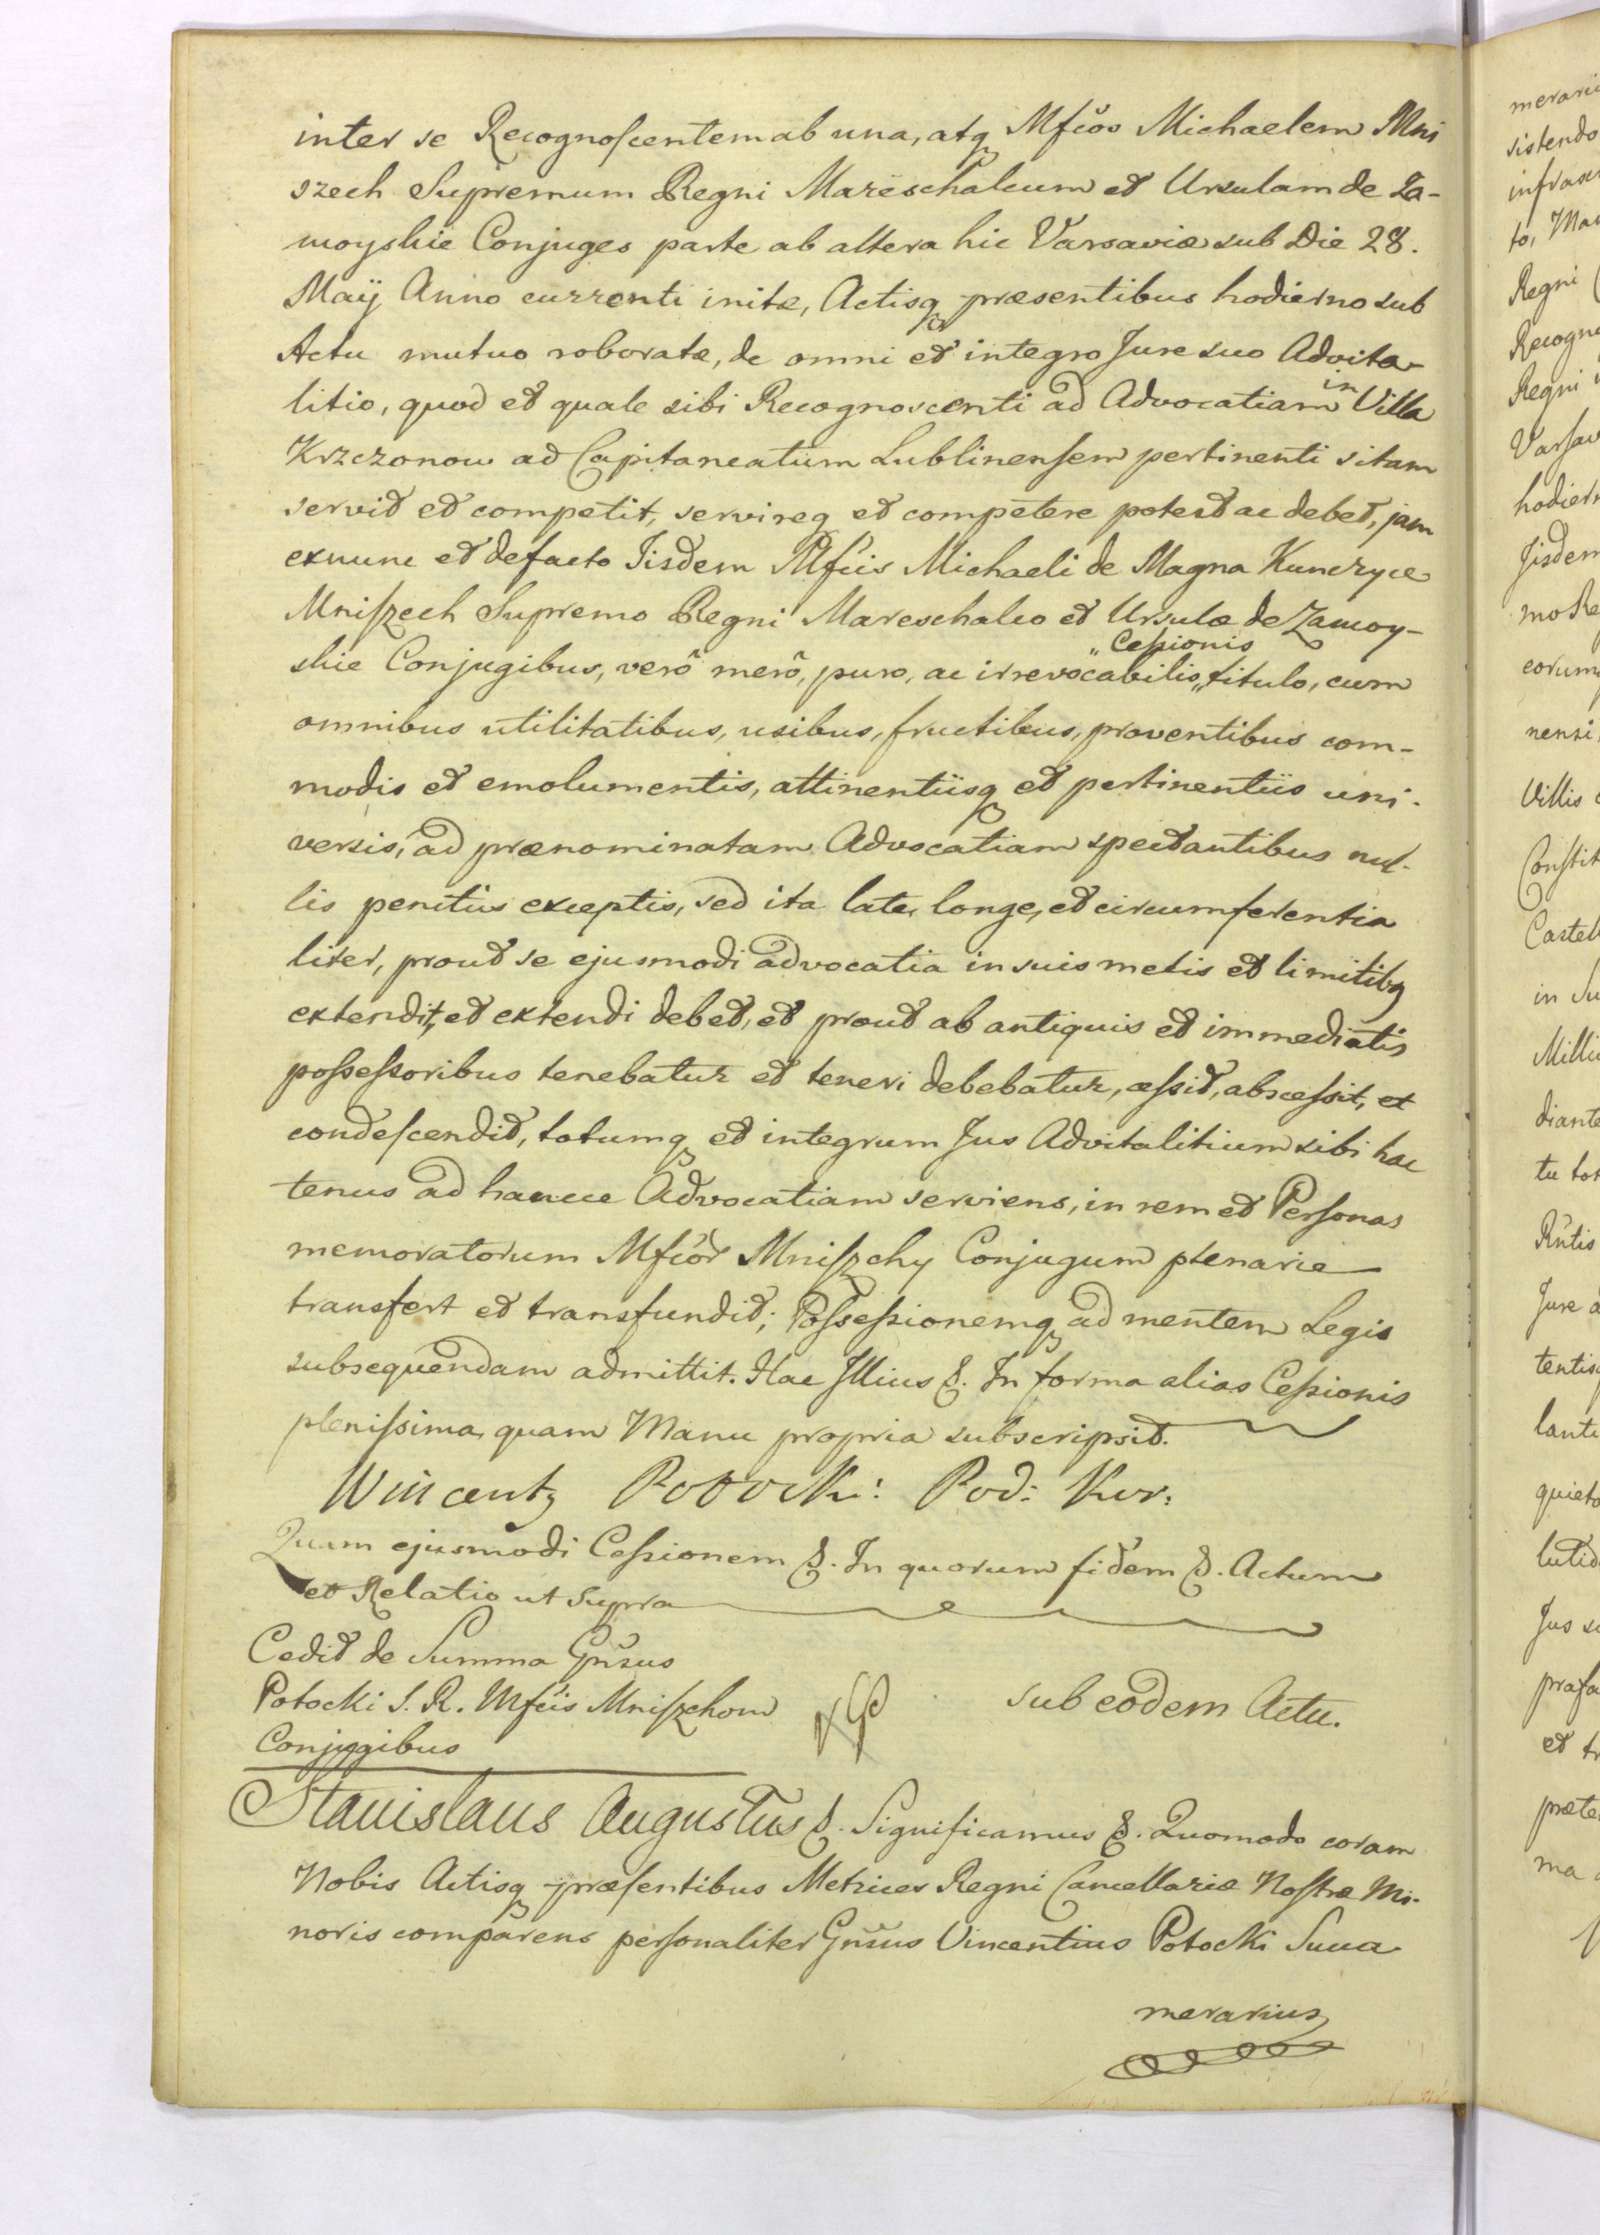 inter se Recognoscentem ab una, atq Mfcos Michaelem Mni
szech Supremum Regni Mareschalcum et Ursulam de Za-
moyskie Conjuges parte ab altera hic Varsaviæ sub Die 28.
Maÿ Anno currenti initæ, Actisq præsentibus hodierno sub
Actu mutuo roboratæ, de omni et integro Jure suo Advita-
litio, quod et quale sibi Recognoscenti ad Advocatiam in Villa
Krzczonow ad Capitaneatum Lublinensem pertinenti sitam
servit et competit, servireq et competere potest ac debet, jam
exnunc et defacto Iisdem Mfcis Michaeli de Magna Kunczyce
Mniszech Supremo Regni Mareschalco et Ursulæ de Zamoy-
skie Conjugibus, verô merô, puro, ac irrevocabilis „Cessionis„ titulo, cum
omnibus utilitatibus, usibus, fructibus, proventibus com-
modis et emolumentis, attinentiisq et pertinentiis uni-
versis, ad prænominatam Advocatiam spectantibus nul-
lis penitus exceptis, sed ita late, longe, et circumferentia
liter, prout se ejusmodi advocatia in suis metis et limitibq
extendit, et extendi debet, et prout ab antiquis et immediatis
possessoribus tenebatur et teneri debebatur, cessit, abscessit, et
condescendit, totumq et integrum Jus Advitalitium sibi hac
tenus ad hancce Advocatiam serviens, in rem et Personas
memoratorum Mfcor Mniszchy Conjugum plenarie
transfert et transfundit; Possessionemq ad mentem Legis
subsequendam admittit. Hac Illius &. In forma alias Cessionis
plenissima, quam Manu propria subscripsit.
Wincenty Potocki: Pod: Kor:
Quam ejusmodi Cessionem &. In quorum fidem &. Actum
et Relatio ut Supra
Cedit de Summa Gnsus
Potocki S. R. Mfcis Mniszchom
Conjugibus
sub eodem Actu.
Stanislaus Augustus &. Significamus &. Quomodo coram
Nobis Actisq præsentibus Metrices Regni Cancellariæ Nostræ Mi-
noris comparens personaliter Gnsus Vincentius Potocki Succa
merarius